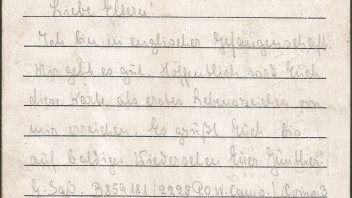 Liebe Eltern!
Ich bin in englischer Gefangenschaft.
Mir geht es gut. Hoffentlich wird Euch
diese Karte als erstes Lebenszeichen von
mir erreichen. Es grüßt Euch bis
auf baldiges Wiedersehen Euer Günther.
G. Saß. B859181 / 2228 P.O.W. Camp. / Comp. 3